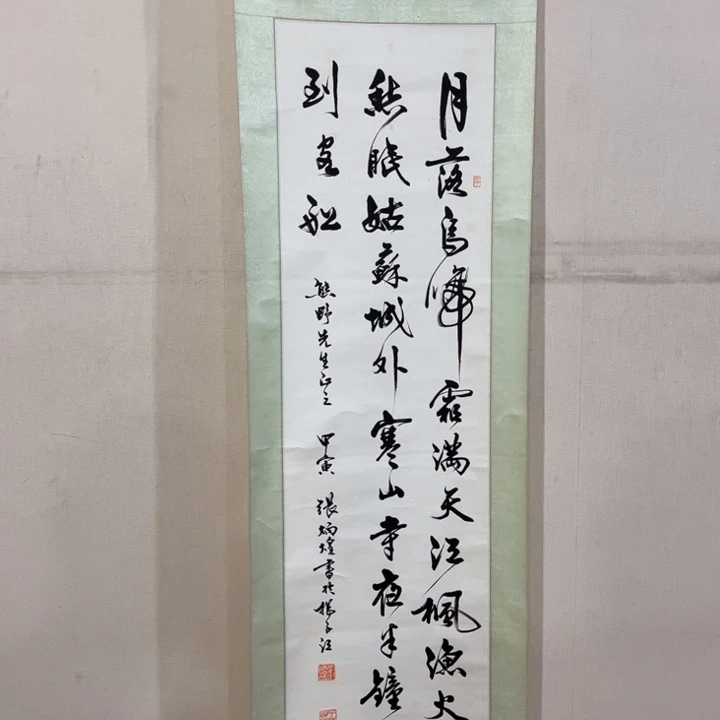 月落烏啼霜滿天江楓漁火
愁眠姑蘇城外寒山寺夜半鐘
到客船
熊野先生正之 甲寅 張炳煌書於揚子江